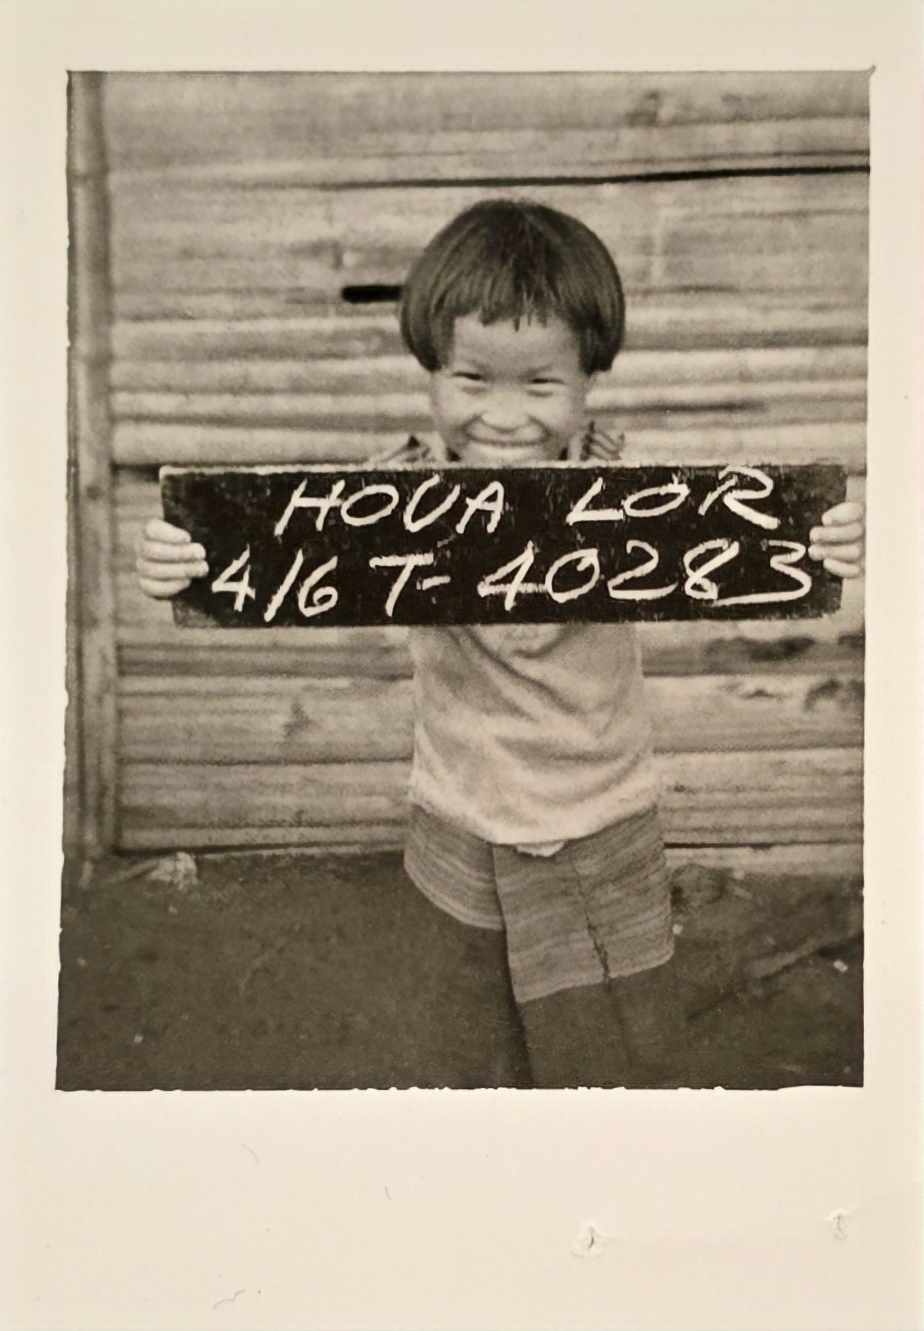 HOUA LOR
4/6 T-40283